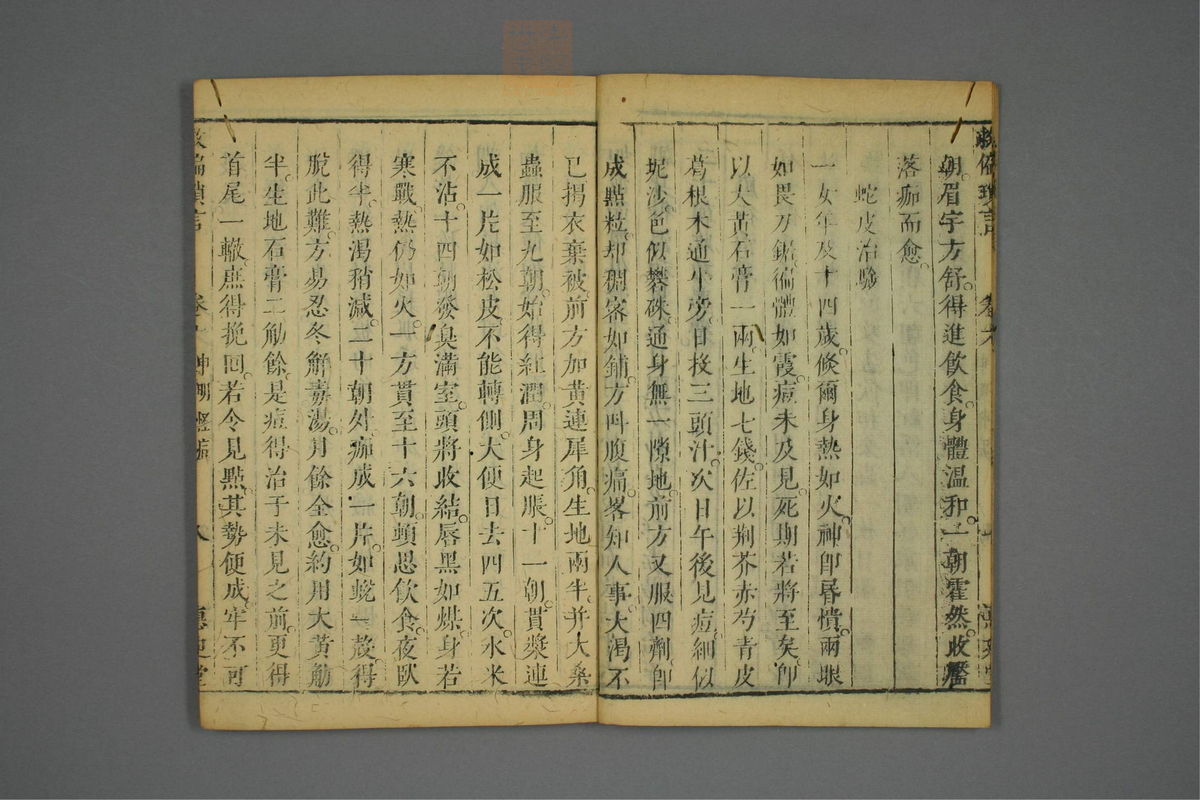 朝。眉宇方舒。得進飲食。身體溫和。二朝霍然。收靨
落痂而愈。
蛇皮治驗
一女年及十四歲。倏爾身熱如火。神卽昏憒。兩眼
如畏刀鋸。徧體如霞。痘未及見。死期若將至矣。卽
以大黃石膏一兩。生地七錢。佐以荆芥赤芍青皮
葛根木通牛旁。日投三頭汁。次日午後見痘。細似
坭沙。色似礬硃。通身無一隙地。前方又服四劑。卽
成點粒。却稠密如鋪。方呌腹痛。畧知人事。大渴不
已。揭衣棄被。前方加黃連犀角。生地兩半。幷大桑
蟲。服至九朝。始得紅潤。周身起脹。十一朝。貫漿連
成一片。如松皮不能轉側。大便日去四五次。水米
不沾。十四朝發臭滿室。頭將收結。唇黑如煤。身若
寒戰。熱仍如火。一方貫至十六朝。頓思飲食。夜臥
得半。熱渴稍減。二十朝外痂成一片。如蛻一殼。得
脫此難。方易忍冬解毒湯。月餘全愈。約用大黃觔
半。生地石膏二觔餘。是痘得治于未見之前。更得
首尾一轍。庶得挽囘。若令見點。其勢便成。牢不可
救偏瑣言 卷 八